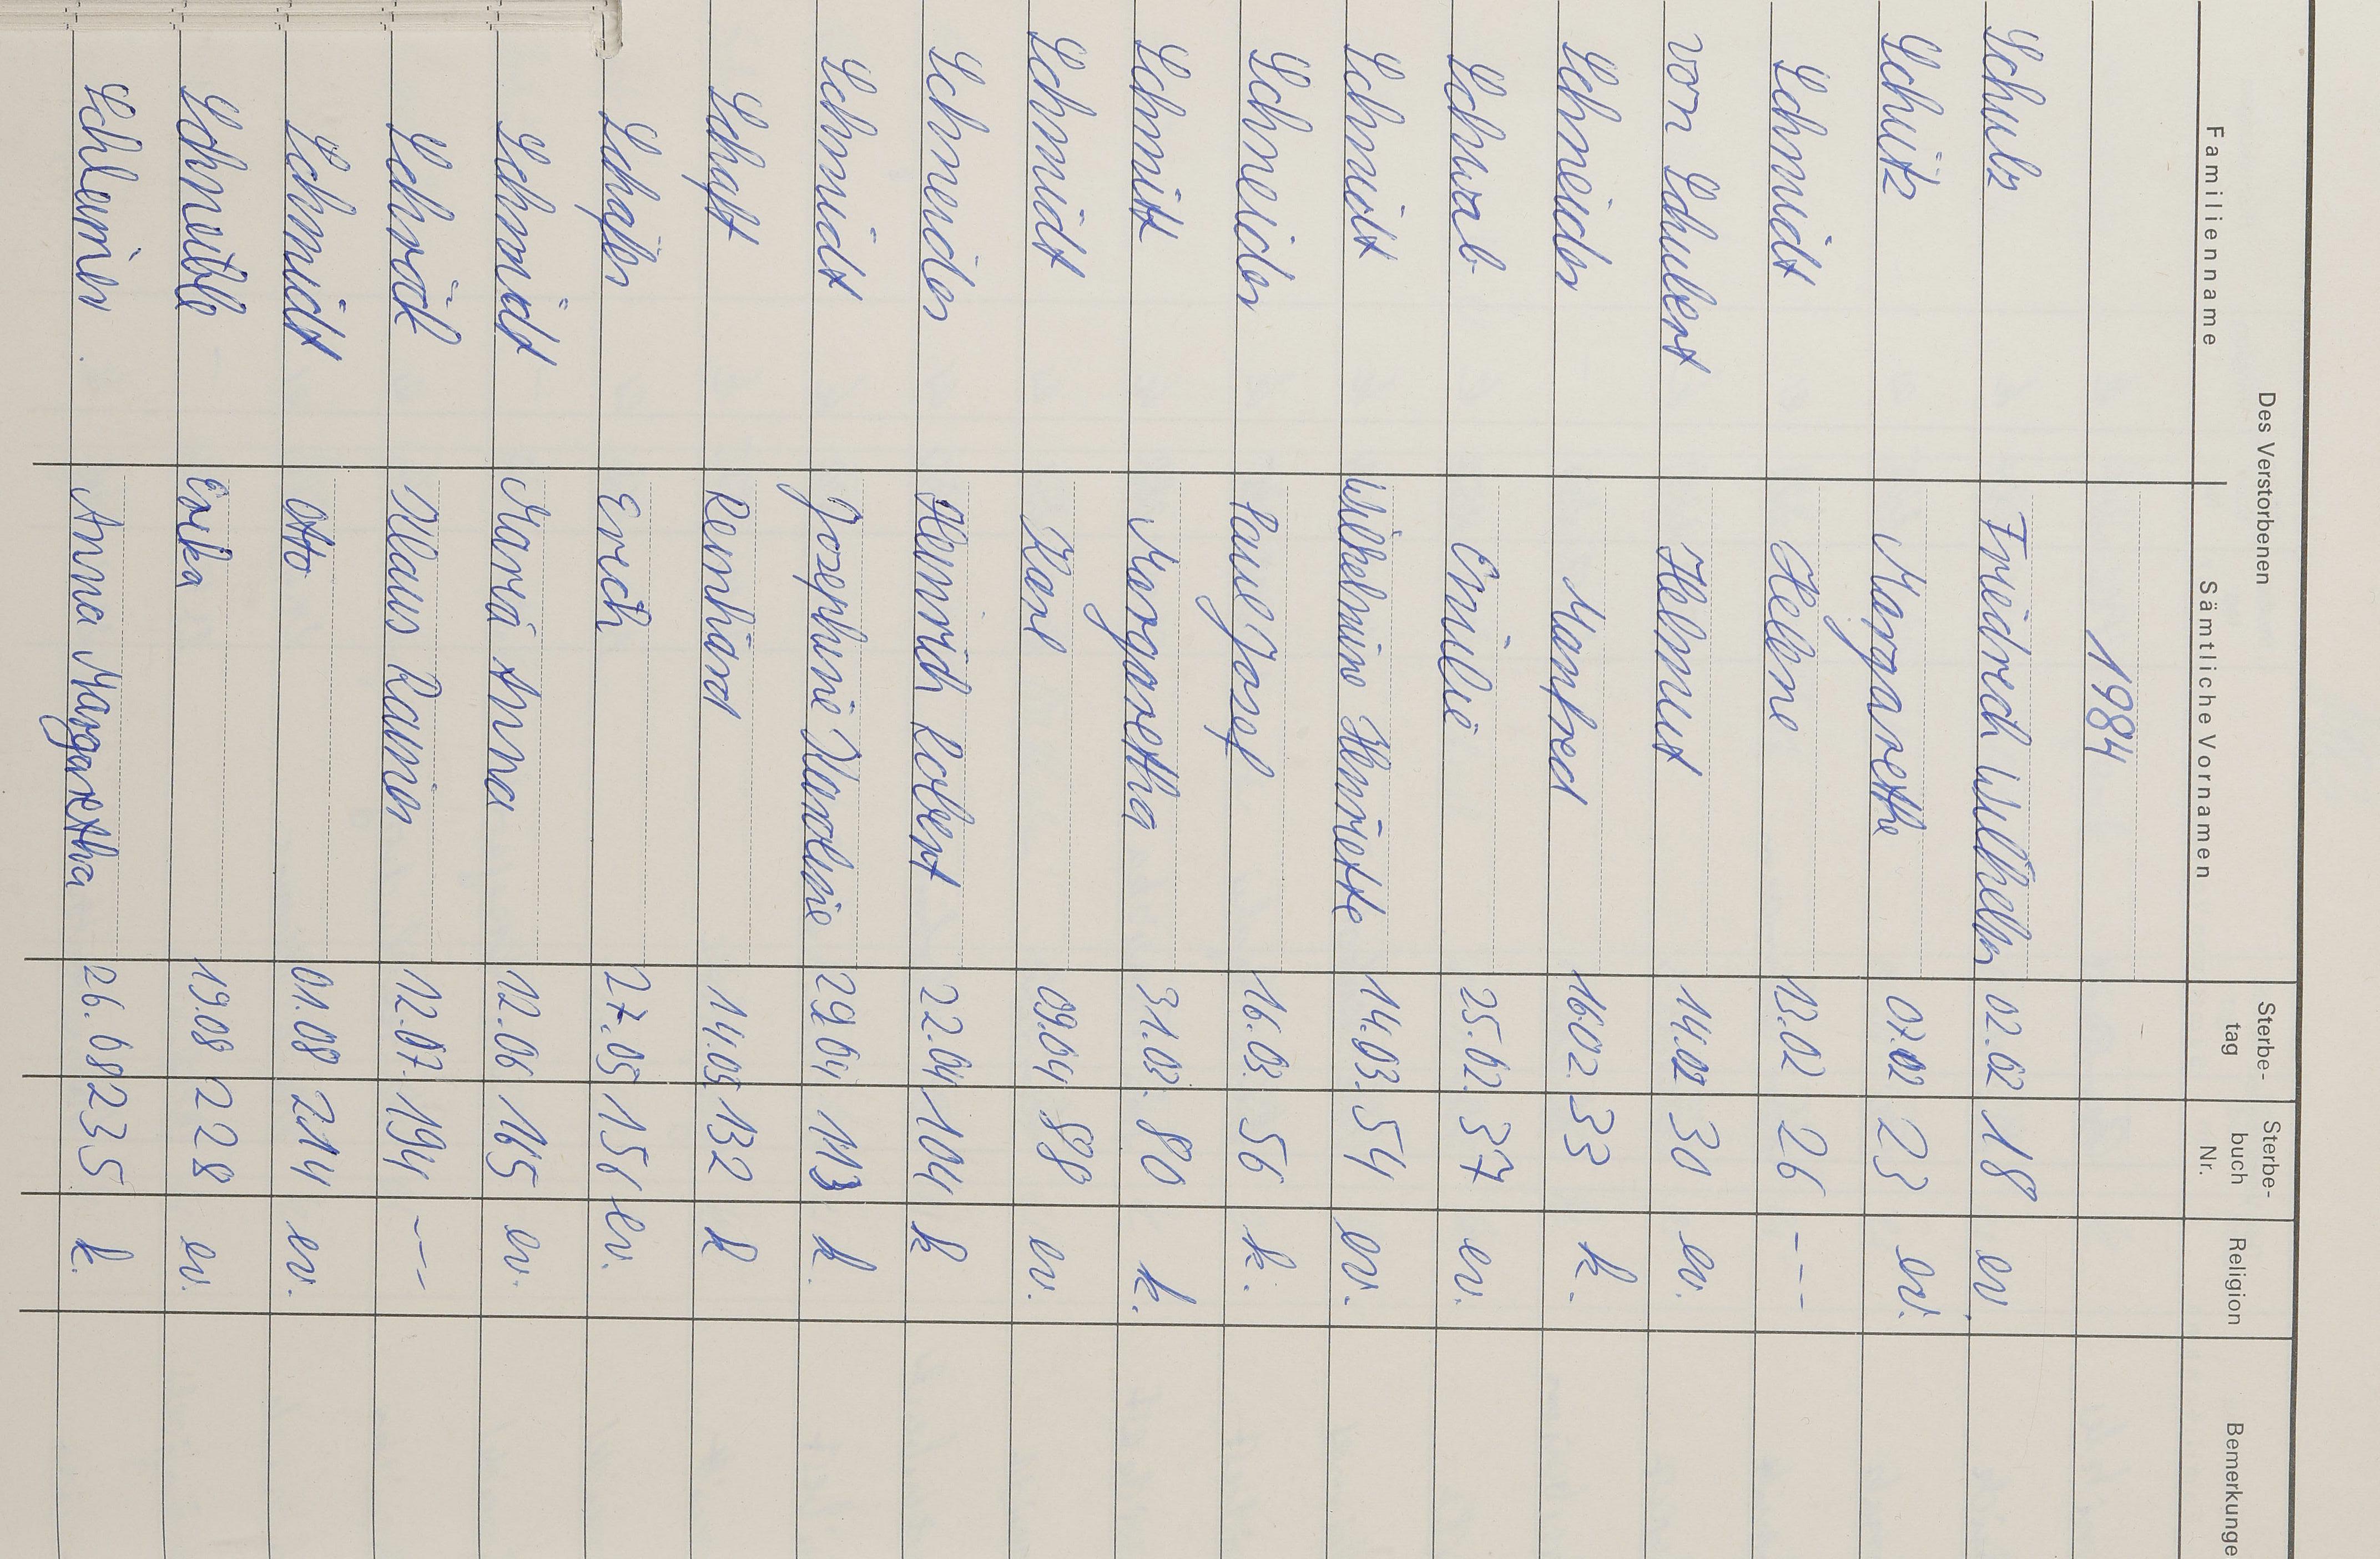 Des Verstorbenen
Familienname Sämtliche Vornamen Sterbe- tag Sterbe- buch Nr. Religion Bemerkunge
1984
Schulz Friedrich Wilhelm 02.02 18 ev.
Schütz Margarethe 07.02 23 ev.
Schmidt Helene 13.02 26 ---
von Schubert Helmut 14.02 30 ev.
Schneider Manfred 16.02. 33 k.
Schwab Emilie 25.02. 37 ev.
Schmidt Wilhelmine Henriette 14.03. 54 ev.
Schneider Paul Josef 16.03. 56 k.
Schmitt Margaretha 31.03. 80 k.
Schmidt Karl 09.04 88 ev.
Schneider Heinrich Robert 22.04 104 k
Schmidt Josephine Karoline 29.04 113 k.
Schaft Reinhard 14.05. 132 k
Schäfer Erich 27.05 151 ev.
Schmidt Maria Anna 12.06 165 ev.
Klaus Rainer 12.07. 194 ---
Schmidt Otto 01.08 214 ev.
Erika 19.08 228 ev.
Anna Margaretha 26.08 235 k.